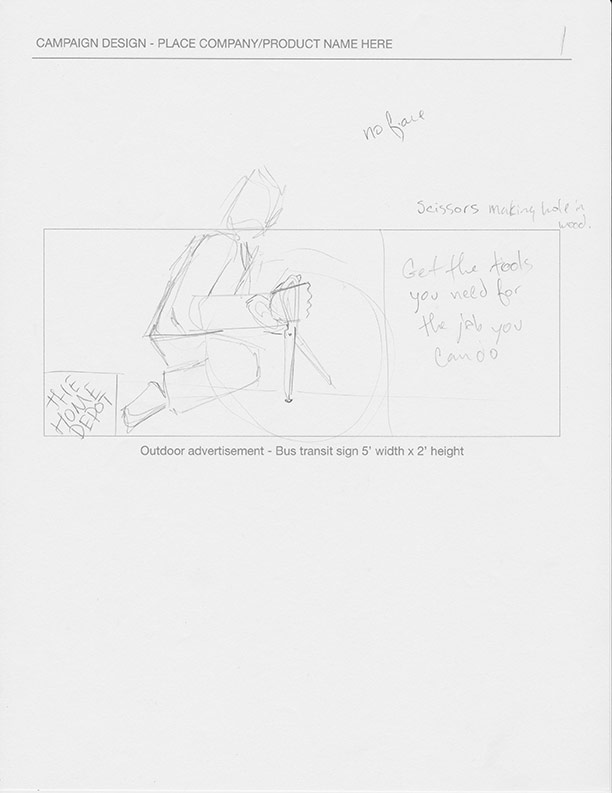 CAMPAIGN DESIGN - PLACE COMPANY/PRODUCT NAME HERE
1
no face
Scissors making hole in
wood.
Get the tools
you need for
the job you
can do
THE
HOME
DEPOT
Outdoor advertisement - Bus transit sign 5' width x 2' height